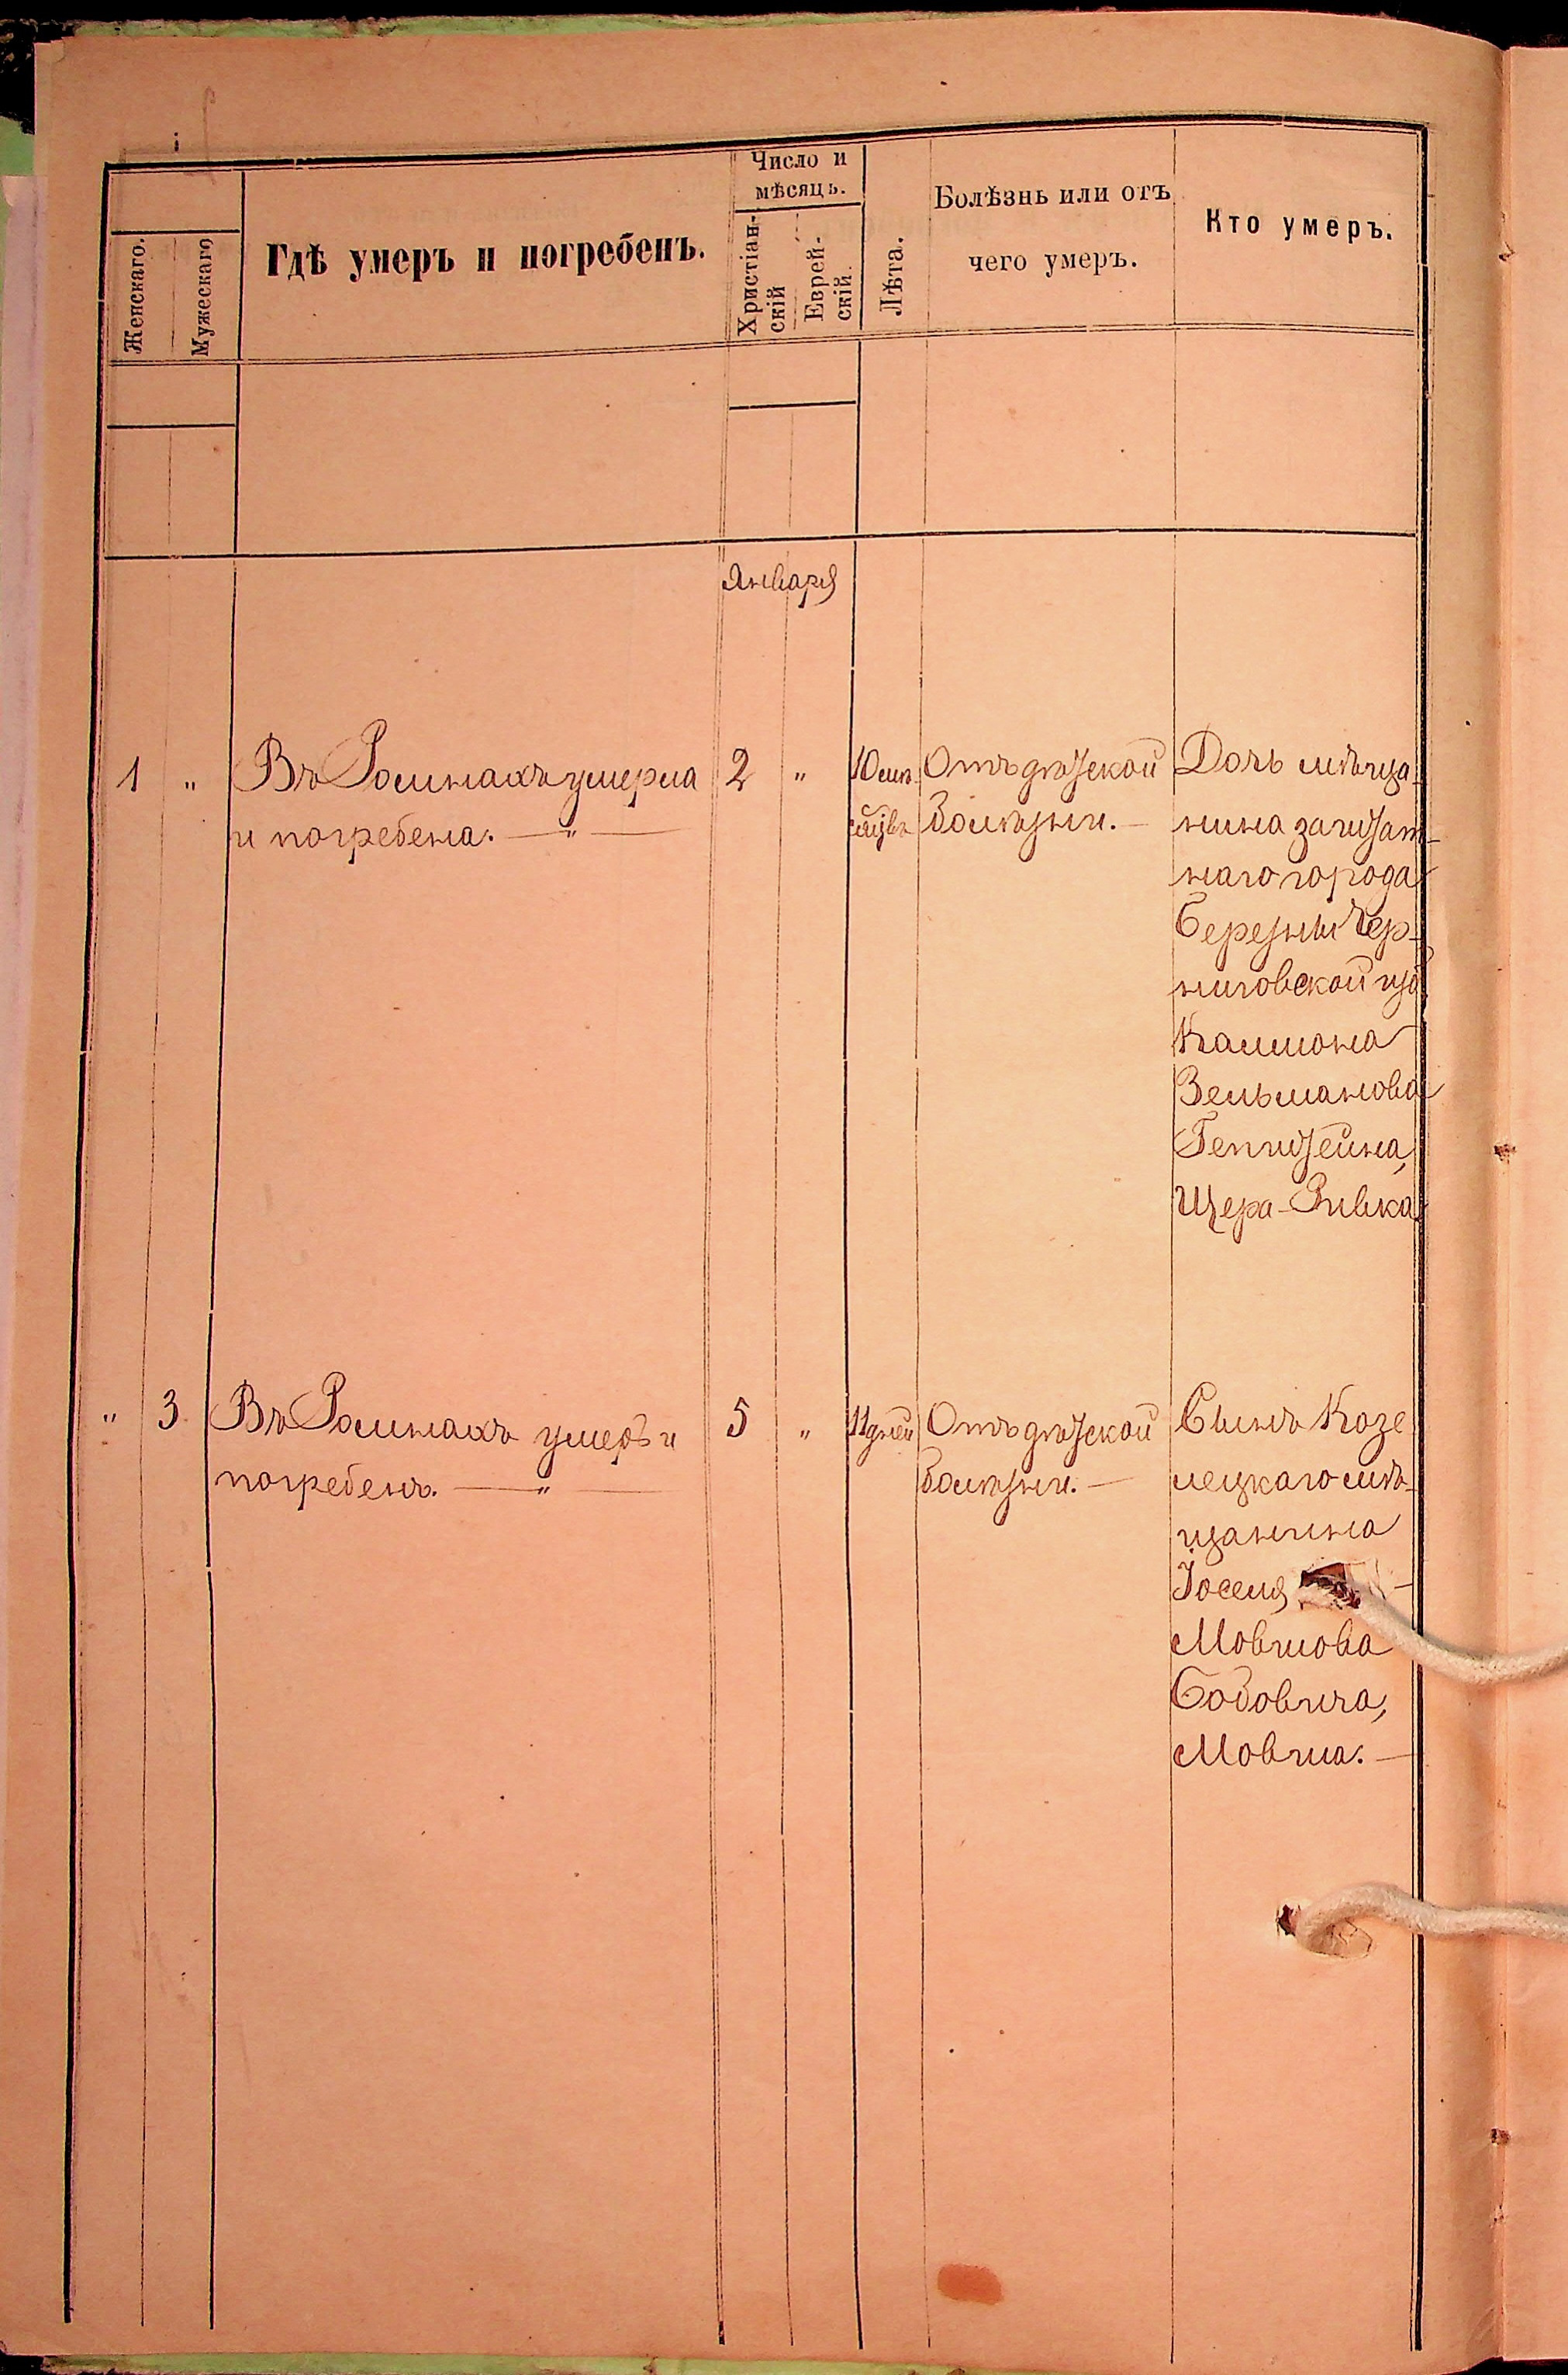 Женскаго.
Мужескаго
Гдѣ умеръ и погребенъ.
Число и
мѣсяцъ.
Христіан-
скій
Еврей-
скій.
Лѣта.
Болѣзнь или отъ
чего умеръ.
Кто умеръ.
Января
1 " Въ Ромнахъ умерла
и погребена. — " —
2 "
10 мѣ-
сяцъ
Отъ дѣтской
болѣзни. —
Дочь мѣща-
нина заштат-
наго города
Березны Чер-
ниговской губ.
Калмона
Зельманова
Гепштейна,
Цера-Ривка
" 3 Въ Ромнахъ умеръ и
погребенъ. — " —
5 "
11 дней
Отъ дѣтской
болѣзни. —
Сынъ Козе
лецкаго мѣ-
щанина
Іоселя —
Мовшова
Бобовича,
Мовша. —